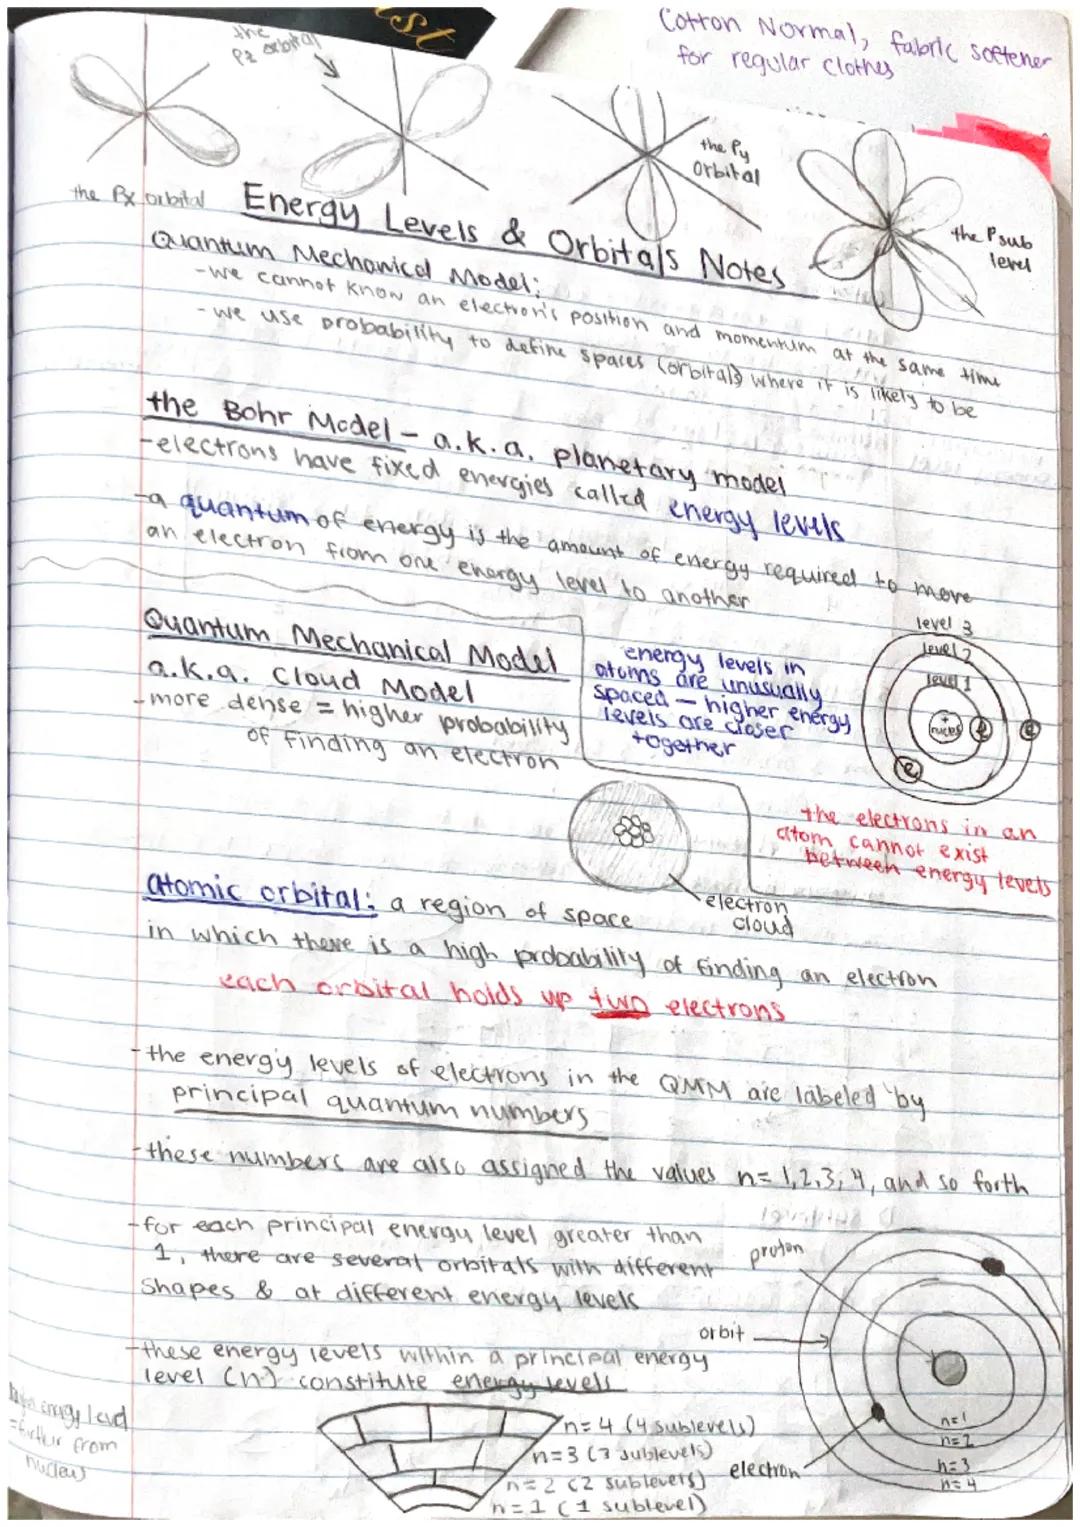 st
Cotton Normal, fabric softener
for regular clothes
the
Pz orbital
the Py
orbital
the Px orbital
the P sub
level
Energy Levels & Orbitals Notes
Quantum Mechanical Model:
-we cannot know an electron's position and momentum at the same time
-we use probability to define spaces (orbitals) where it is likely to be
the Bohr Model - a.k.a. planetary model
-electrons have fixed energies called energy levels
-a quantum of energy is the amount of energy required to move
an electron from one energy level to another
Quantum Mechanical Model
a.k.a. Cloud Model
-more dense = higher probability
of finding an electron
energy levels in
atoms are unusually
spaced - higher energy
levels are closer
together
level 3
level 2
level 1
+
e
e
e
the electrons in an
atom cannot exist
between energy levels
electron
cloud
atomic orbital: a region of space
in which there is a high probability of finding an electron
each orbital holds up two electrons
-the energy levels of electrons in the QMM are labeled by
principal quantum numbers
-these numbers are also assigned the values n= 1,2,3,4, and so forth
-for each principal energy level greater than
1, there are several orbitals with different
shapes & at different energy levels
-these energy levels within a principal energy
level (n) constitute energy levels
energy level
=further from
nucleus
n=4 (4 sublevels)
n=3 (3 sublevels)
n=2 (2 sublevels)
n=1 (1 sublevel)
proton
orbit
electron
n=1
n=2
n=3
n=4